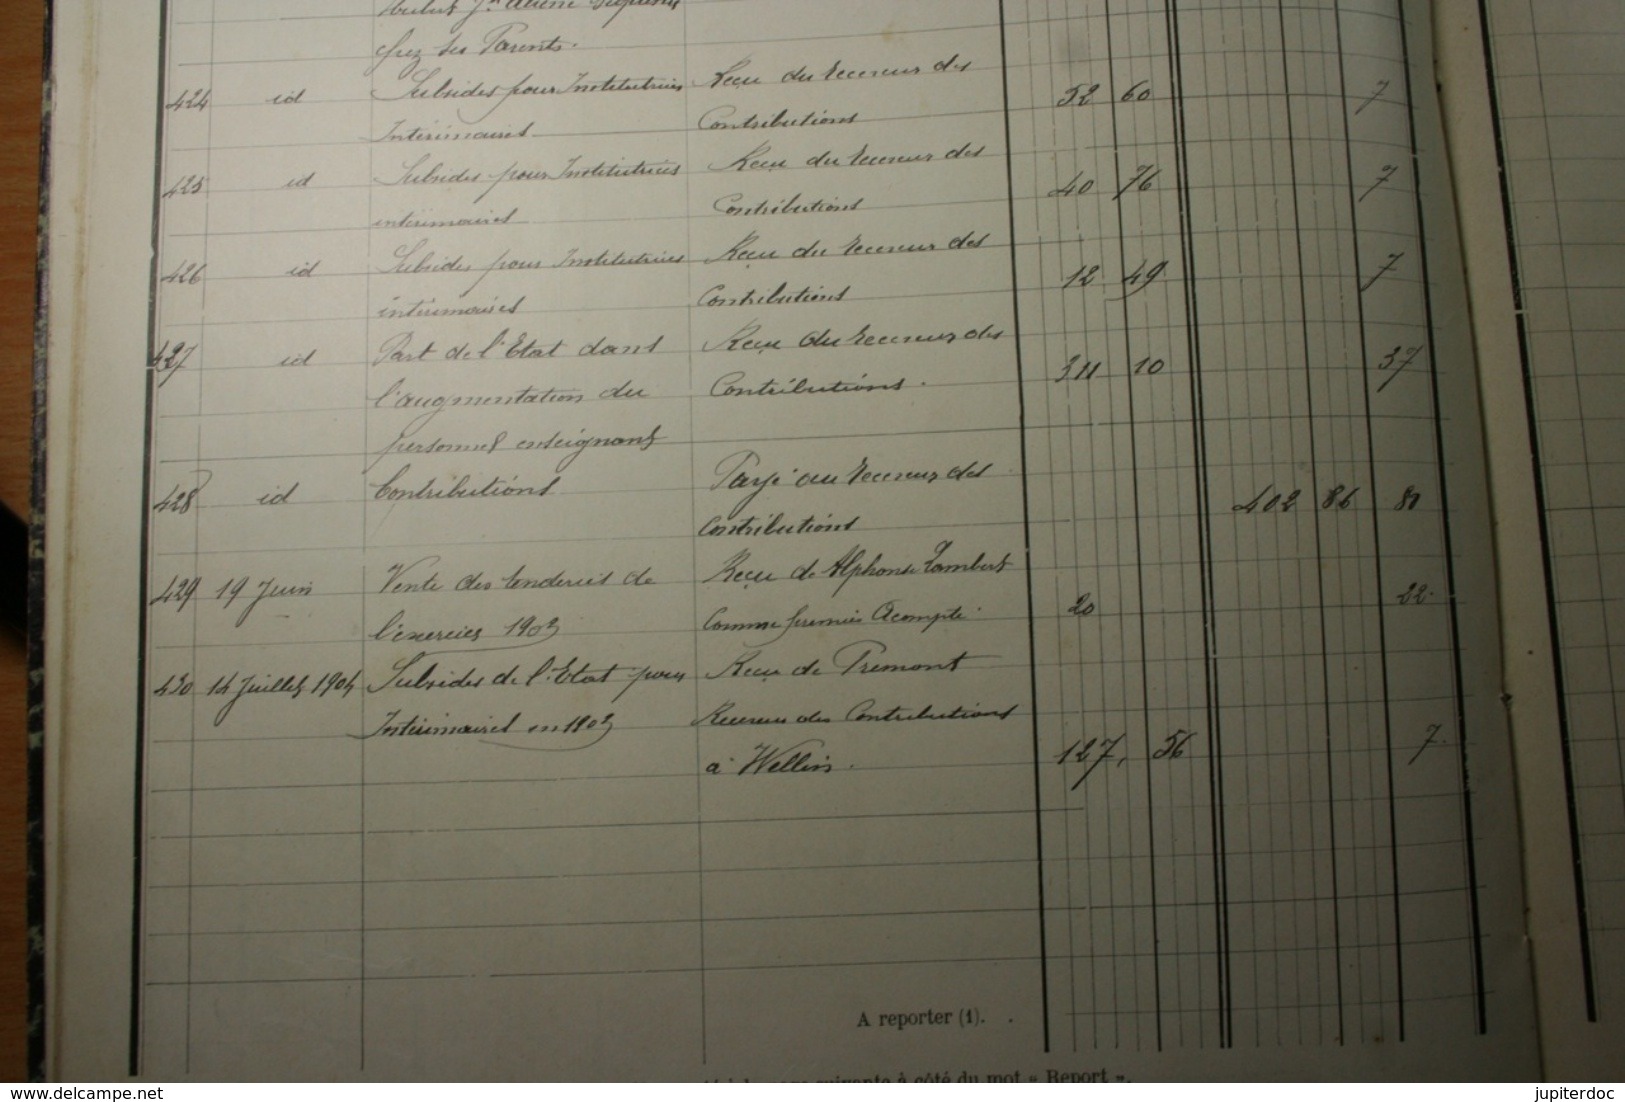 chez ses Parents.
424 id Subsides pour Institutrices Reçu du Receveur des 52 60 7
Interimaires Contributions
425 id Subsides pour Institutrices Reçu du Receveur des 40 76 7
intérimaires Contributions
426 id Subsides pour Institutrices Reçu du Receveur des 12 49 7
intérimaires Contributions
427 id Part de l'Etat dans Reçu du Receveur des 311 10 37
l'augmentation du Contributions.
personnel enseignant
428 id Contributions Payé au Receveur des 402 86 81
Contributions
429 19 Juin Vente des tenderies de Reçu de Alphonse Lambert 20 22.
l'exercice 1903 Comme premier Acompte
430 14 Juillet 1904 Subsides de l'Etat pour Reçu de Premont
Intérimaires en 1903 Receveur des Contributions
à Wellin. 127, 56 7.
A reporter (1). .
suivante à côté du mot « Report ».
www.delcampe.net jupiterdoc